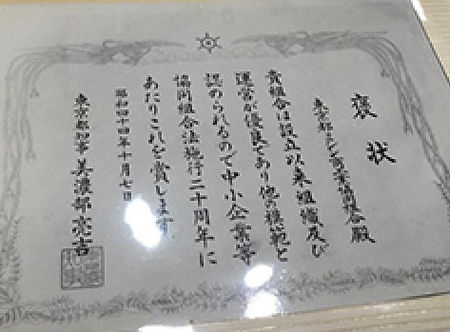 褒状
東京都
商業協同組合殿
貴組合は設立以来組織及び
運営が優良であり他の模範と
認められるので中小企業等
協同組合法施行二十周年に
あたりこれを賞します
昭和四十四年十月七日
東京都知事 美濃部亮吉